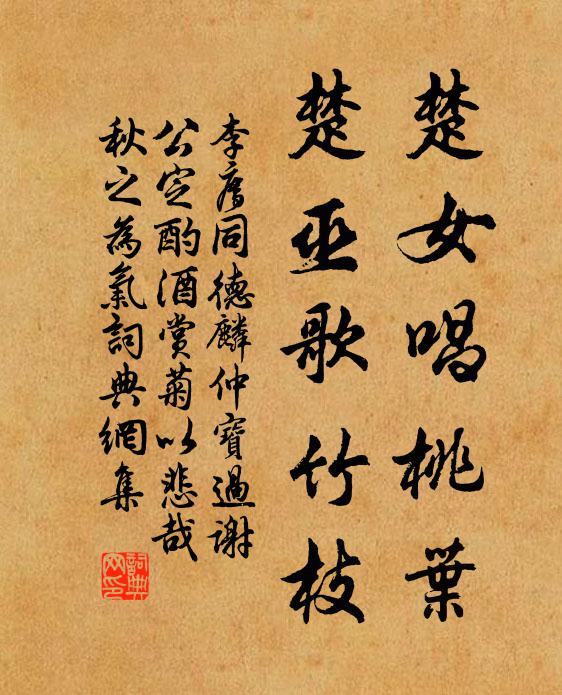 楚女唱桃葉
楚巫歌竹枝
李廌同德麟仲寶過謝
公定酌酒賞菊以悲哉
秋之為氣詞典網集
詞典网印